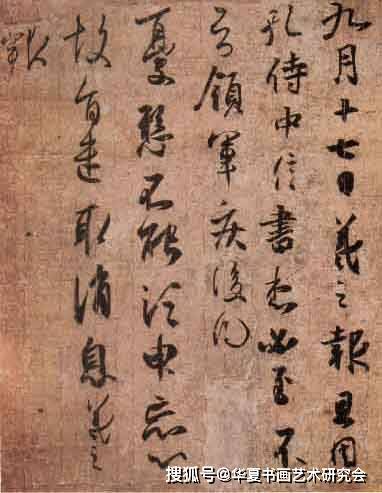 九月十七日羲之報且因
孔侍中信書想必至不
知領軍疾後問
憂懸不能須臾忘心
故旨遣取消息羲之
報
搜狐号@华夏书画艺术研究会